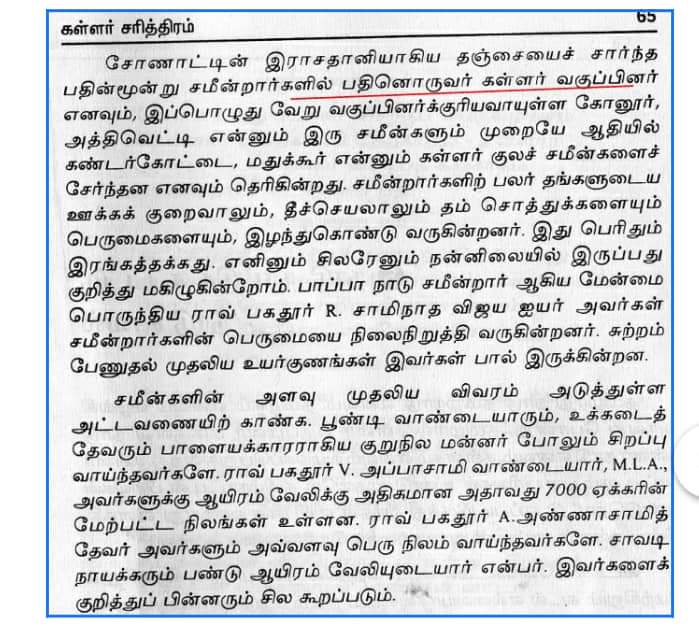 கள்ளர் சரித்திரம் 65
சோணாட்டின் இராசதானியாகிய தஞ்சையைச் சார்ந்த
பதின்மூன்று சமீன்றார்களில் பதினொருவர் கள்ளர் வகுப்பினர்
எனவும், இப்பொழுது வேறு வகுப்பினர்க்குரியவாயுள்ள கோனூர்,
அத்திவெட்டி என்னும் இரு சமீன்களும் முறையே ஆதியில்
கண்டர்கோட்டை, மதுக்கூர் என்னும் கள்ளர் குலச் சமீன்களைச்
சேர்ந்தன எனவும் தெரிகின்றது. சமீன்றார்களிற் பலர் தங்களுடைய
ஊக்கக் குறைவாலும், தீச்செயலாலும் தம் சொத்துக்களையும்
பெருமைகளையும், இழந்துகொண்டு வருகின்றனர். இது பெரிதும்
இரங்கத்தக்கது. எனினும் சிலரேனும் நன்னிலையில் இருப்பது
குறித்து மகிழுகின்றோம். பாப்பா நாடு சமீன்றார் ஆகிய மேன்மை
பொருந்திய ராவ் பகதூர் R. சாமிநாத விஜய ஐயர் அவர்கள்
சமீன்றார்களின் பெருமையை நிலைநிறுத்தி வருகின்றனர். சுற்றம்
பேணுதல் முதலிய உயர்குணங்கள் இவர்கள் பால் இருக்கின்றன.
சமீன்களின் அளவு முதலிய விவரம் அடுத்துள்ள
அட்டவணையிற் காண்க. பூண்டி வாண்டையாரும், உக்கடைத்
தேவரும் பாளையக்காரராகிய குறுநில மன்னர் போலும் சிறப்பு
வாய்ந்தவர்களே. ராவ் பகதூர் V. அப்பாசாமி வாண்டையார், M.L.A.,
அவர்களுக்கு ஆயிரம் வேலிக்கு அதிகமான அதாவது 7000 ஏக்கரின்
மேற்பட்ட நிலங்கள் உள்ளன. ராவ் பகதூர் A.அண்ணாசாமித்
தேவர் அவர்களும் அவ்வளவு பெரு நிலம் வாய்ந்தவர்களே. சாவடி
நாயக்கரும் பண்டு ஆயிரம் வேலியுடையார் என்பர். இவர்களைக்
குறித்துப் பின்னரும் சில கூறப்படும்.